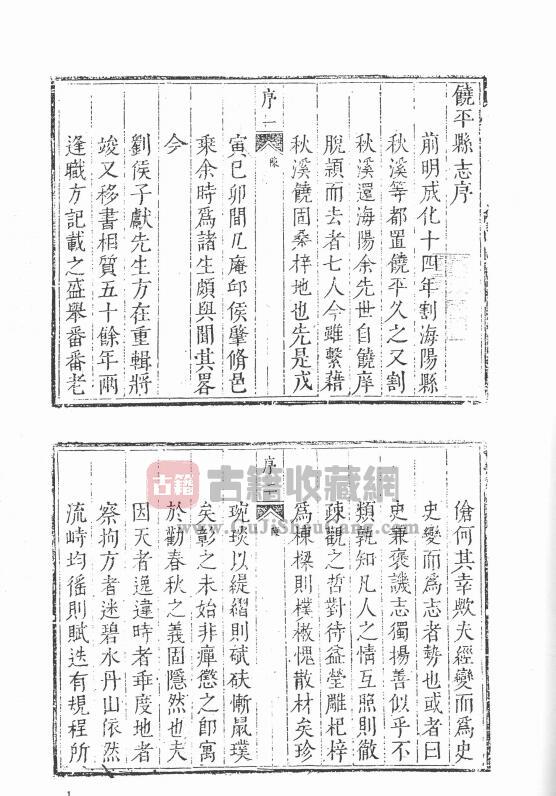 饒平縣志序
前明成化十四年割海陽縣
秋溪等都置饒平久之又割
秋溪還海陽余先世自饒庠
脫穎而去者七人今雖繫藉
秋溪饒固桑梓地也先是戊
序一
寅巳卯間凢庵邱侯肇脩邑
乘余時爲諸生頗與聞其畧
今
劉侯子獻先生方在重輯將
竣又移書相質五十餘年兩
逢職方記載之盛舉番番老
傖何其幸歟夫經變而爲史
史變而爲志者勢也或者曰
史兼褒譏志獨揚善似乎不
類孰知凡人之情互照則徹
疎觀之哲對待益瑩雕杞梓
爲棟樑則樸樕愧散材矣珍
序
琬琰以緹縉則碔砆慚最璞
矣彰之未始非癉懲之卽寓
於勸春秋之義固隱然也夫
因天者逸違時者乖度地者
察拘方者迷碧水丹山依然
流峙均徭則賦迭有規程所
古籍
古籍收藏網
www.GuJiShouCang.com
1